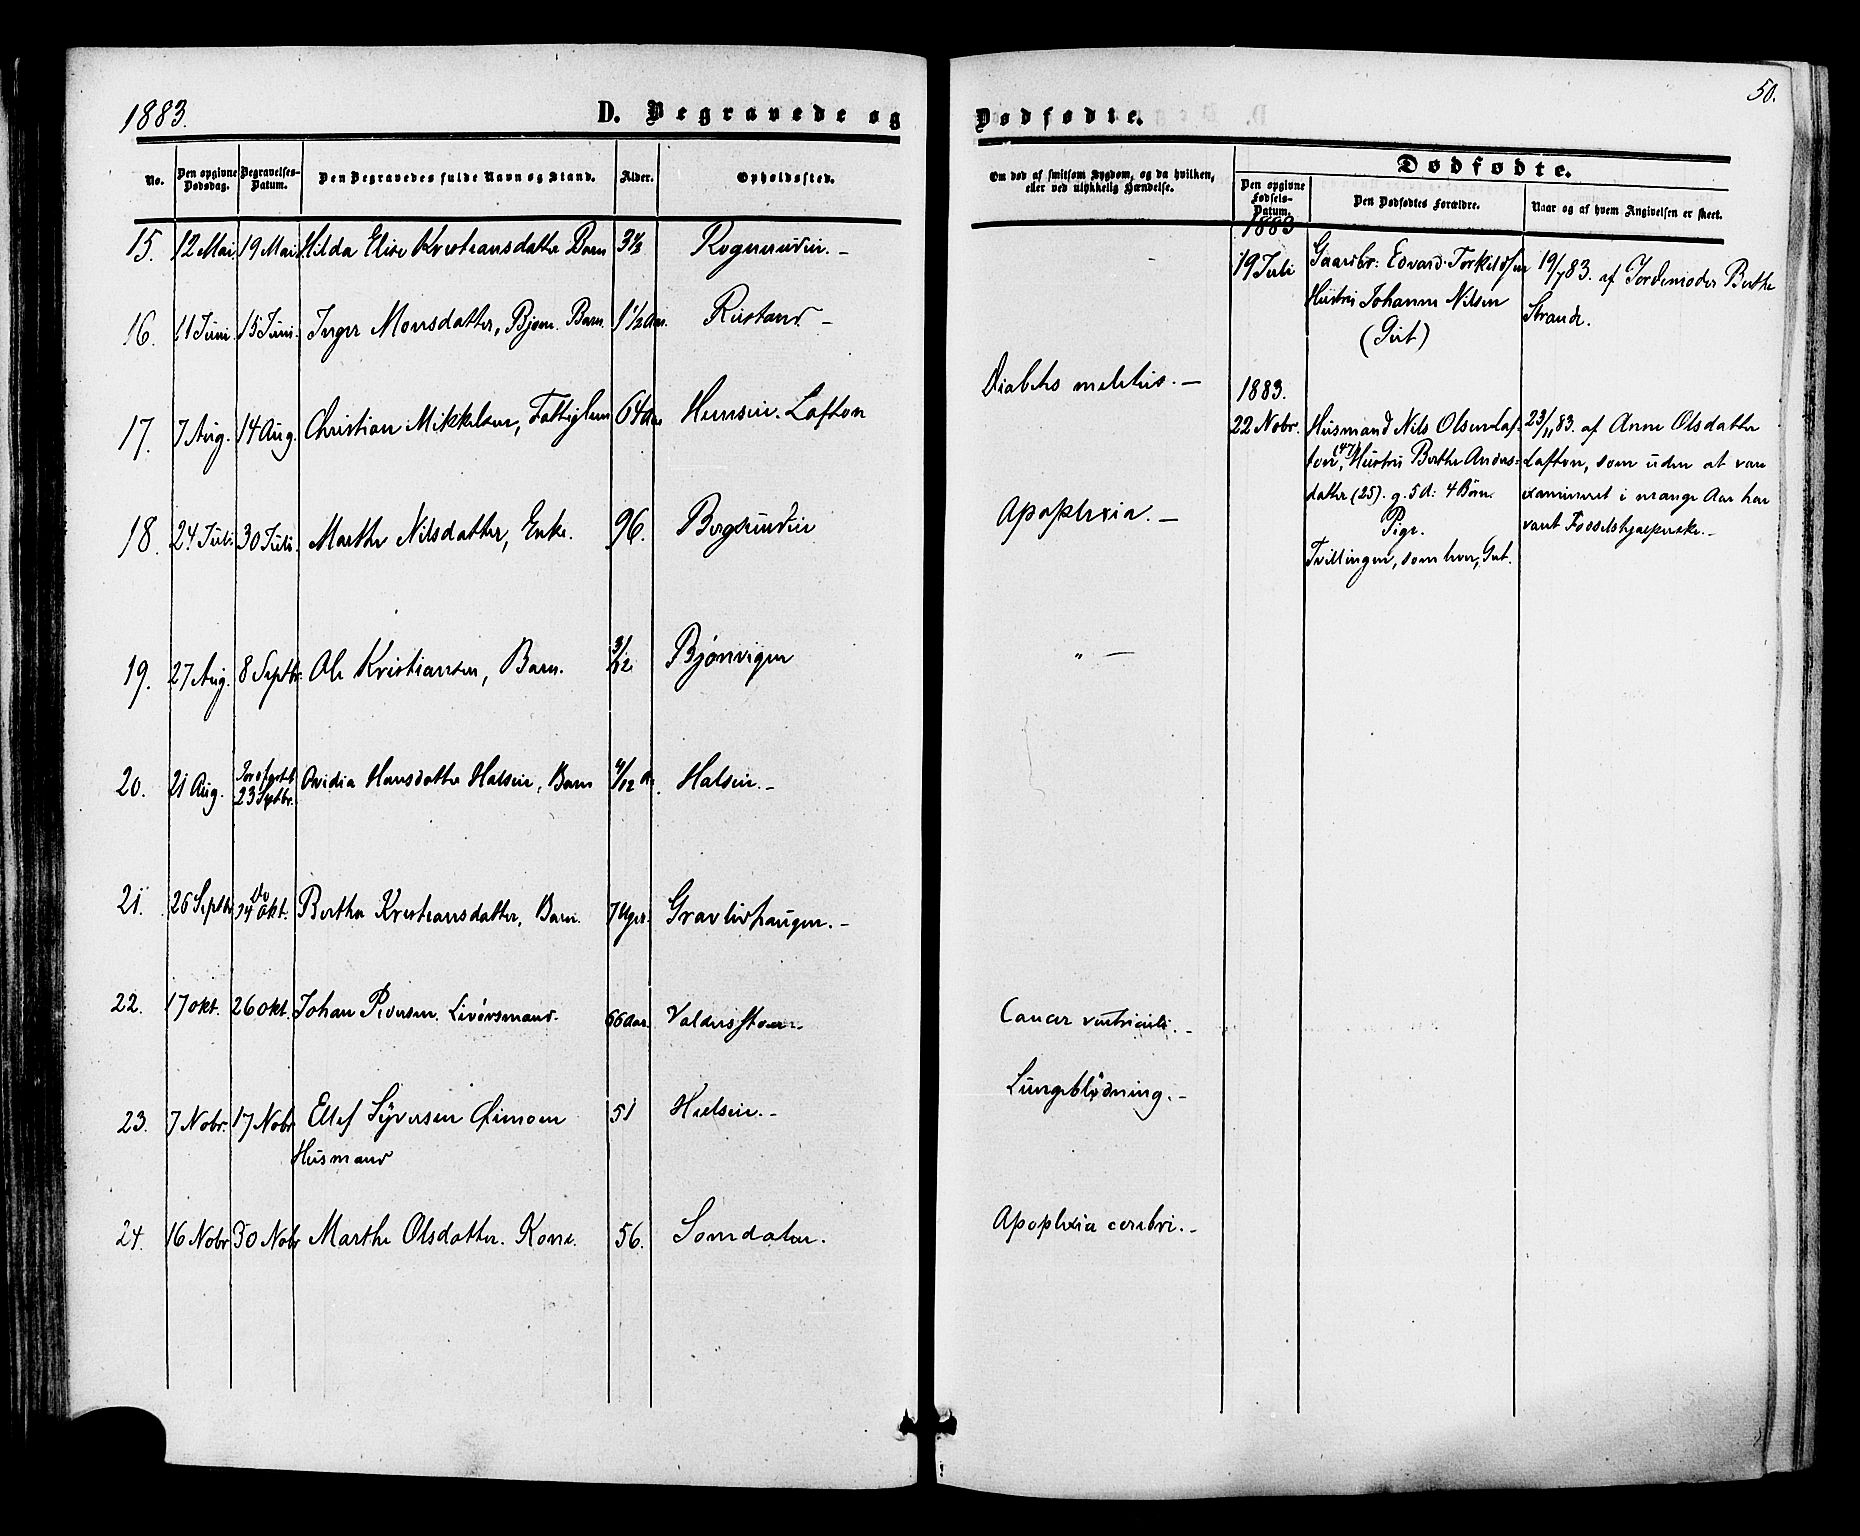 1883.
D. Begravede og
No.
Den opgivne Dødsdag.
Begravelses-Datum.
Den Begravedes fulde Navn og Stand.
Alder.
Opholdssted.
15. 12 Mai. 19 Mai. Hilda Elise Kristiansdatter Barn
16. 11 Juni. 15 Juni. Inger Monsdatter, Barn 1 1/2 Aar. Rustand –
17. 7 Aug. 14 Aug. Christian Mikkelsen, Fattiglem 64 Aar Lafton
18. 24 Juli. 30 Juli. Marthe Nilsdatter, Enke. 96.
19. 27 Aug. 8 Septbr. Ole Kristiansen, Barn. 3/12 Bjønvigen
20. 21 Aug. 23 Septbr. Ovidia Hansdatter Halsen, Barn 4/12 Halsen. –
21. 26 Septbr 14 Okt. Berthe Kristiansdatter, Barn. 7 Uger.
22. 17 Okt. 26 Okt. Johan 66 Aar.
23. 7 Nobr. 17 Nobr. Ellef Syversen 51
Husmand
24. 16 Nobr 30 Nobr Marthe Olsdatter. Kone. 56. Somdalen.
50.
Dødfødte.
Om død af smitsom Sygdom, og da hvilken,
eller ved ulykkelig Hændelse.
Dødfødte.
Den opgivne Fødsels-Datum.
Den Dødfødtes Forældre.
Naar og af hvem Angivelsen er skeet.
1883
19 Juli Gaardbr: Edvard Torkildsen 19/7 83. af Jordemoder Berthe
Hustru Johanne Nilsen Strande.
(Gut)
Diabetes melitus. –
1883.
22 Nobr. Husmand Nils Olsen Laf- 23/11 83. af Anne Olsdatter
ton (47), Hustru Berthe Anders- Lafton, som uden at være
datter (25). g. 5 d: 4 Børn. examineret i mange Aar har
Apoplexia. –
Pige. vært Fødselshjælperske. –
Tvillingen, som lever, Gut.
" –
Cancer ventriculi. –
Lungeblødning. –
Apoplexia cerebri. –